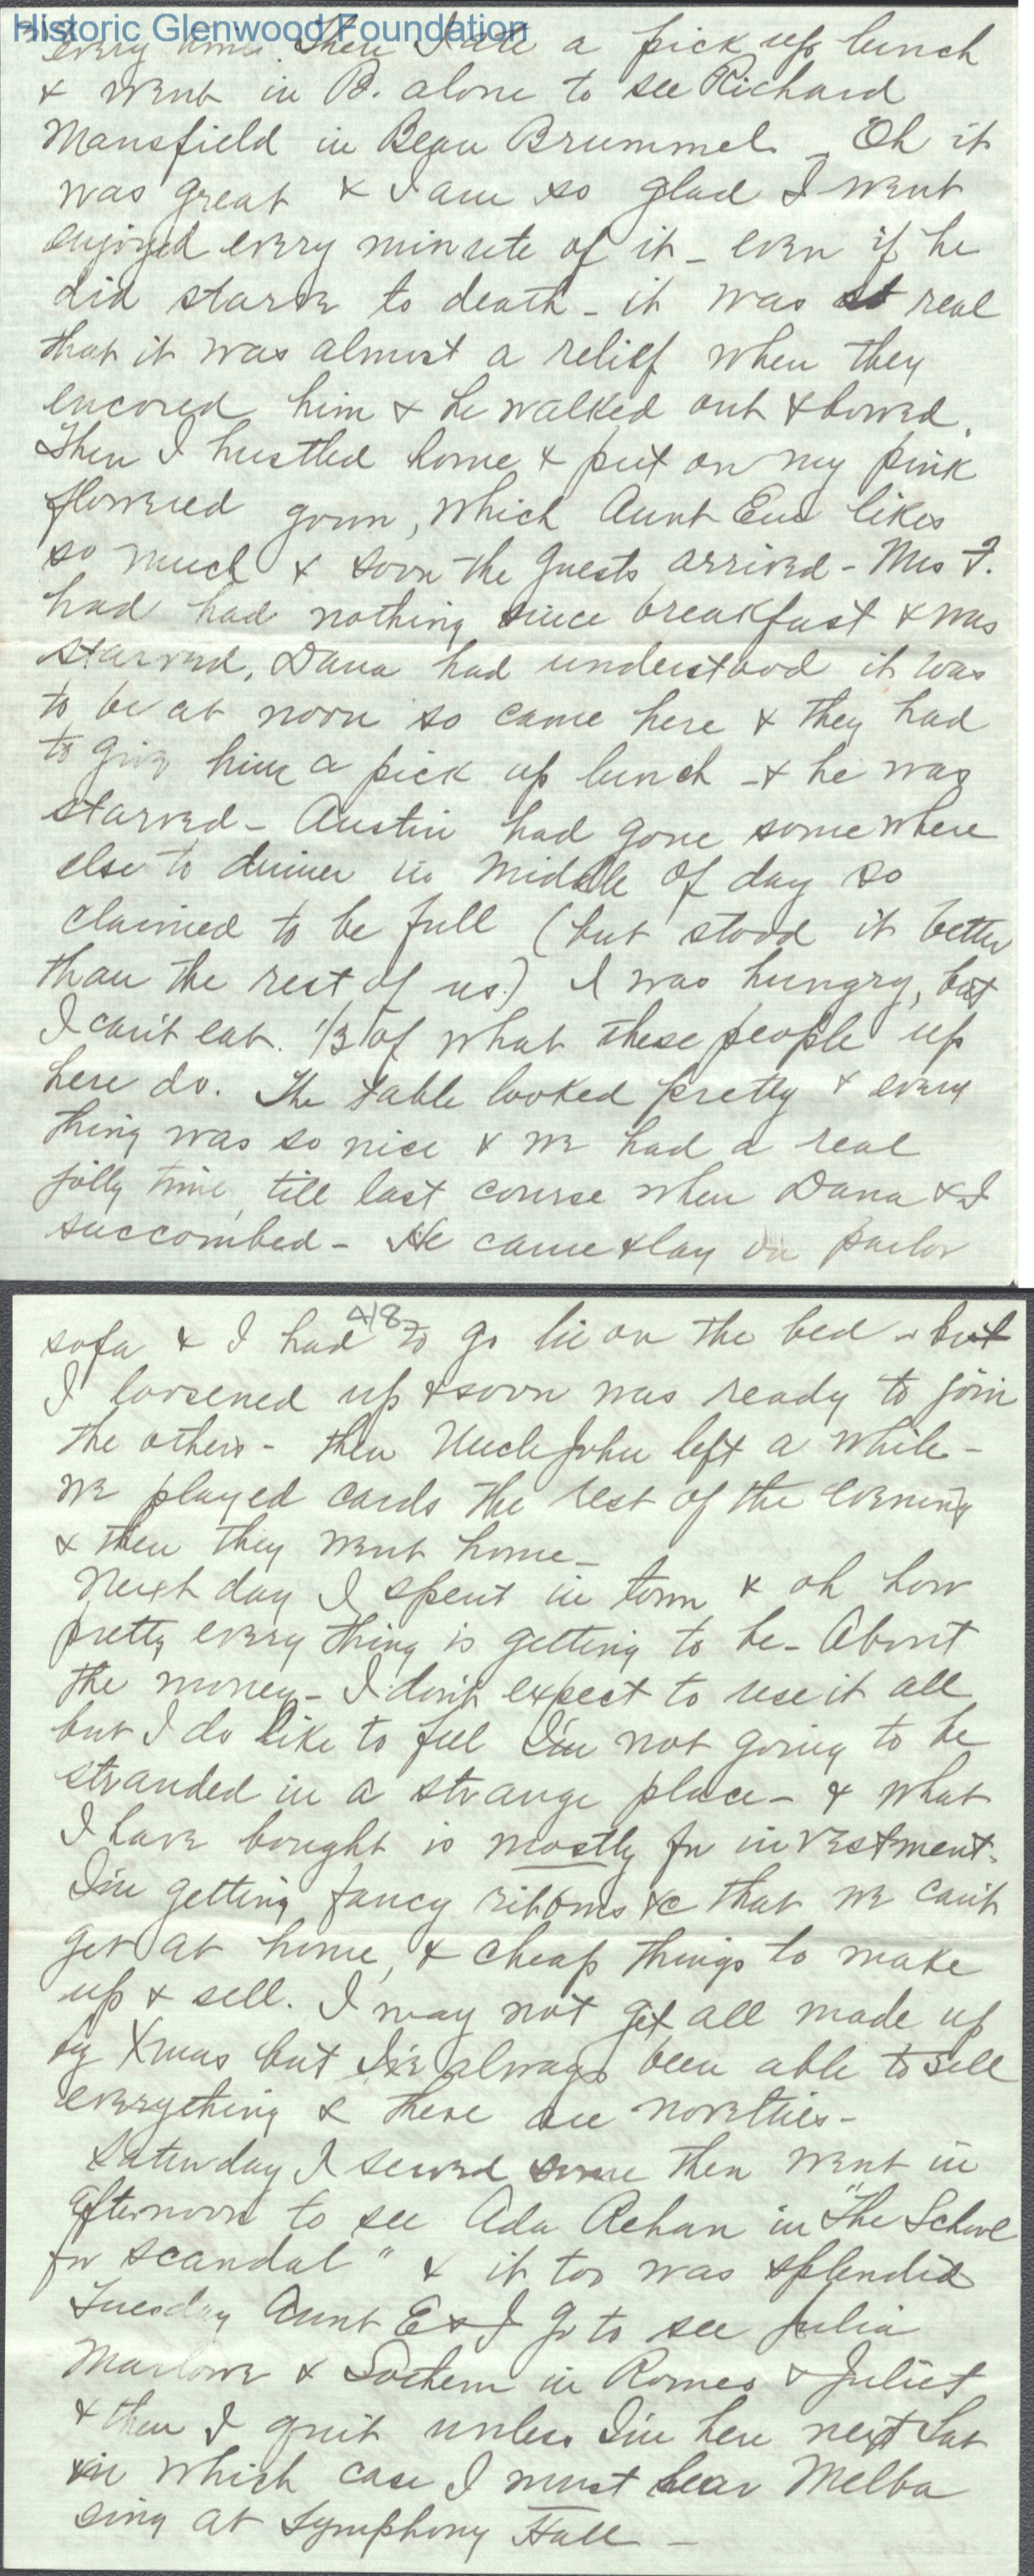 Historic Glenwood Foundation
every time. Then I ate a pick up lunch
& went in B. alone to see Richard
Mansfield in Beau Brummel - Oh it
was great & I am so glad I went
enjoyed every minute of it - even if he
did starve to death - it was so real
that it was almost a relief when they
encored him & he walked out & bowed.
Then I hustled home & put on my pink
flowered gown, which Aunt Eva likes
so much & soon the guests arrived - Mrs F.
had had nothing since breakfast & was
starved, Dana had understood it was
to be at noon so came here & they had
to give him a pick up lunch - & he was
starved - Austin had gone somewhere
else to dinner in middle of day so
claimed to be full (but stood it better
than the rest of us.) I was hungry, but
I can't eat 1/3 of what these people up
here do. The table looked pretty & every
thing was so nice & we had a real
jolly time, till last course when Dana & I
succombed - He came & lay on parlor
4/8
sofa & I had to go lie on the bed - but
I loosened up & soon was ready to join
the others - then Uncle John left a while -
we played cards the rest of the evening
& then they went home -
Next day I spent in town & oh how
pretty every thing is getting to be - About
the money - I don't expect to use it all
but I do like to feel I'm not going to be
stranded in a strange place - & what
I have bought is mostly for investment.
I'm getting fancy ribbons &c that we can't
get at home, & cheap things to make
up & sell. I may not get all made up
by Xmas but I've always been able to sell
everything & these are novelties -
Saturday I sewed some then went in
afternoon to see Ada Rehan in "The School
for Scandal" & it too was splendid
Tuesday Aunt E & I go to see Julia
Marlowe & Sothern in Romeo & Juliet
& then I quit unless I'm here next Sat
in which case I must hear Melba
sing at Symphony Hall -